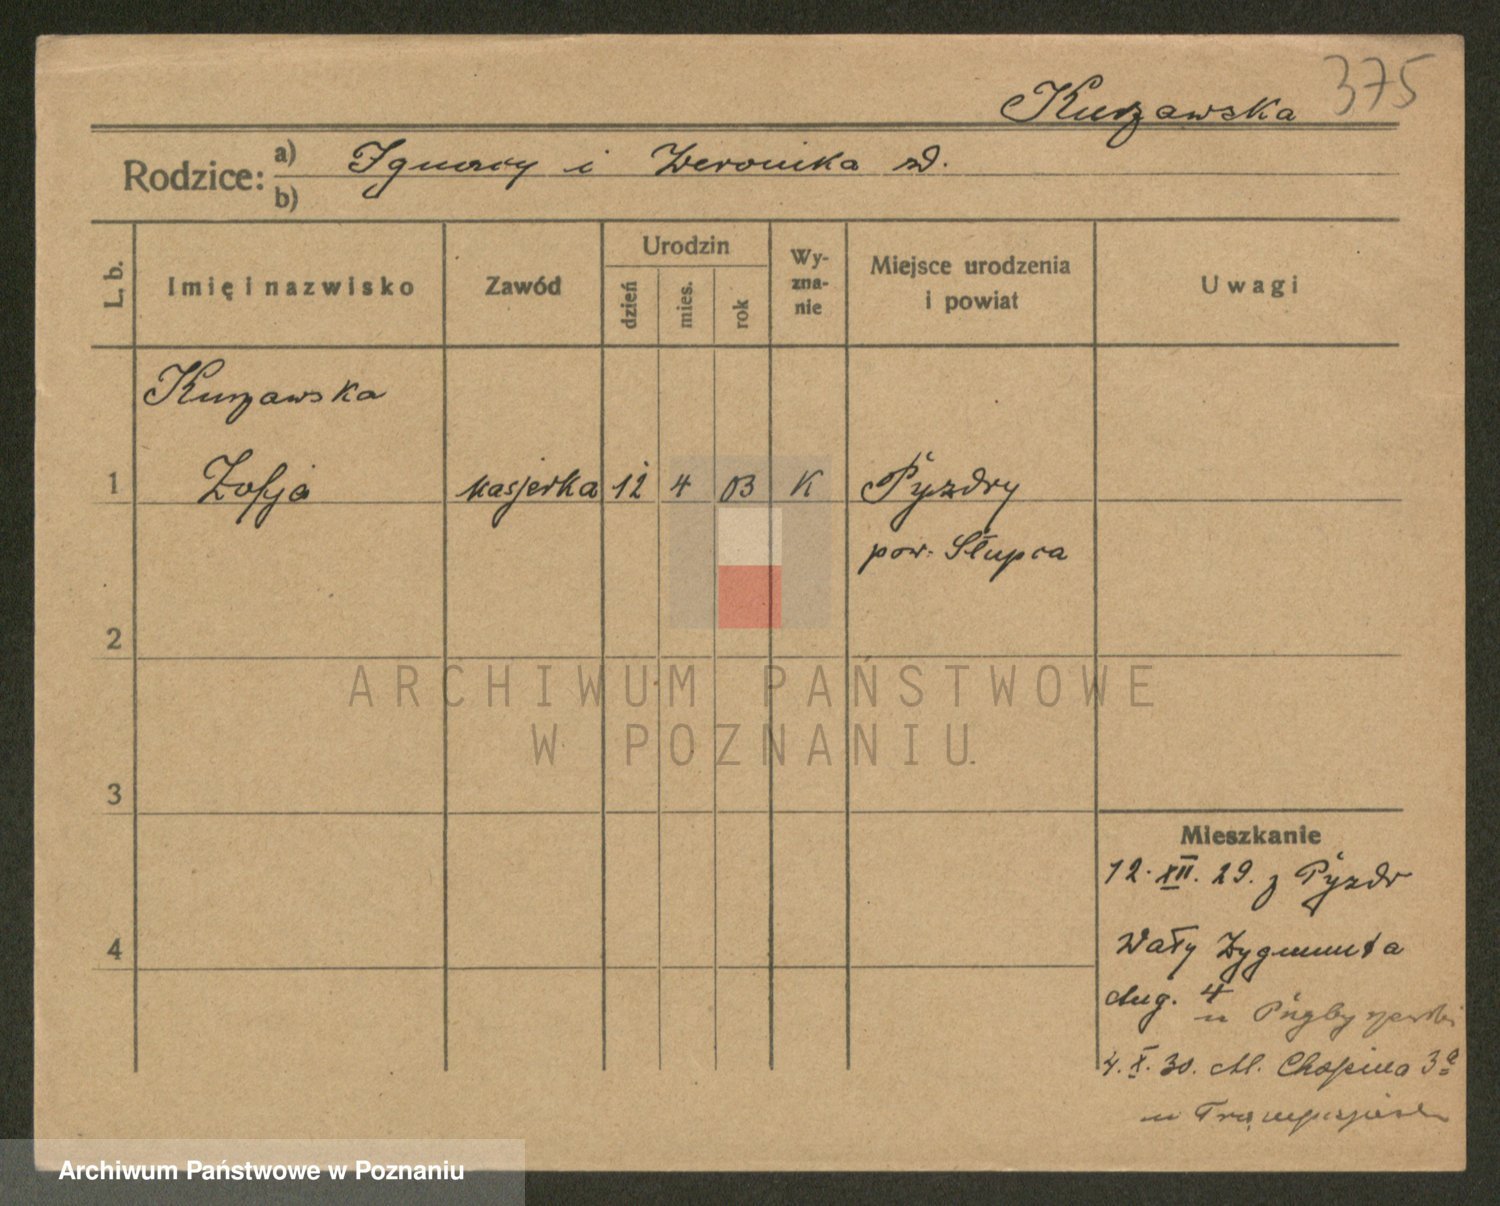 375
Kurzawska
Rodzice: a) Ignacy i Weronika
b)
L. b.
Imię i nazwisko
Zawód
Urodzin
dzień
mies.
rok
Wy-
zna-
nie
Miejsce urodzenia
i powiat
Uwagi
Kurzawska
1 Zofja kasjerka 12 4 03 K Pyzdry
pow. Słupca
2
3
4
Mieszkanie
12. XII. 29. z Pyzdr
Wały Zygmunta
Aug. 4
u
4. X. 30. Al. Chopina 3a
u
ARCHIWUM PAŃSTWOWE
W POZNANIU
Archiwum Państwowe w Poznaniu